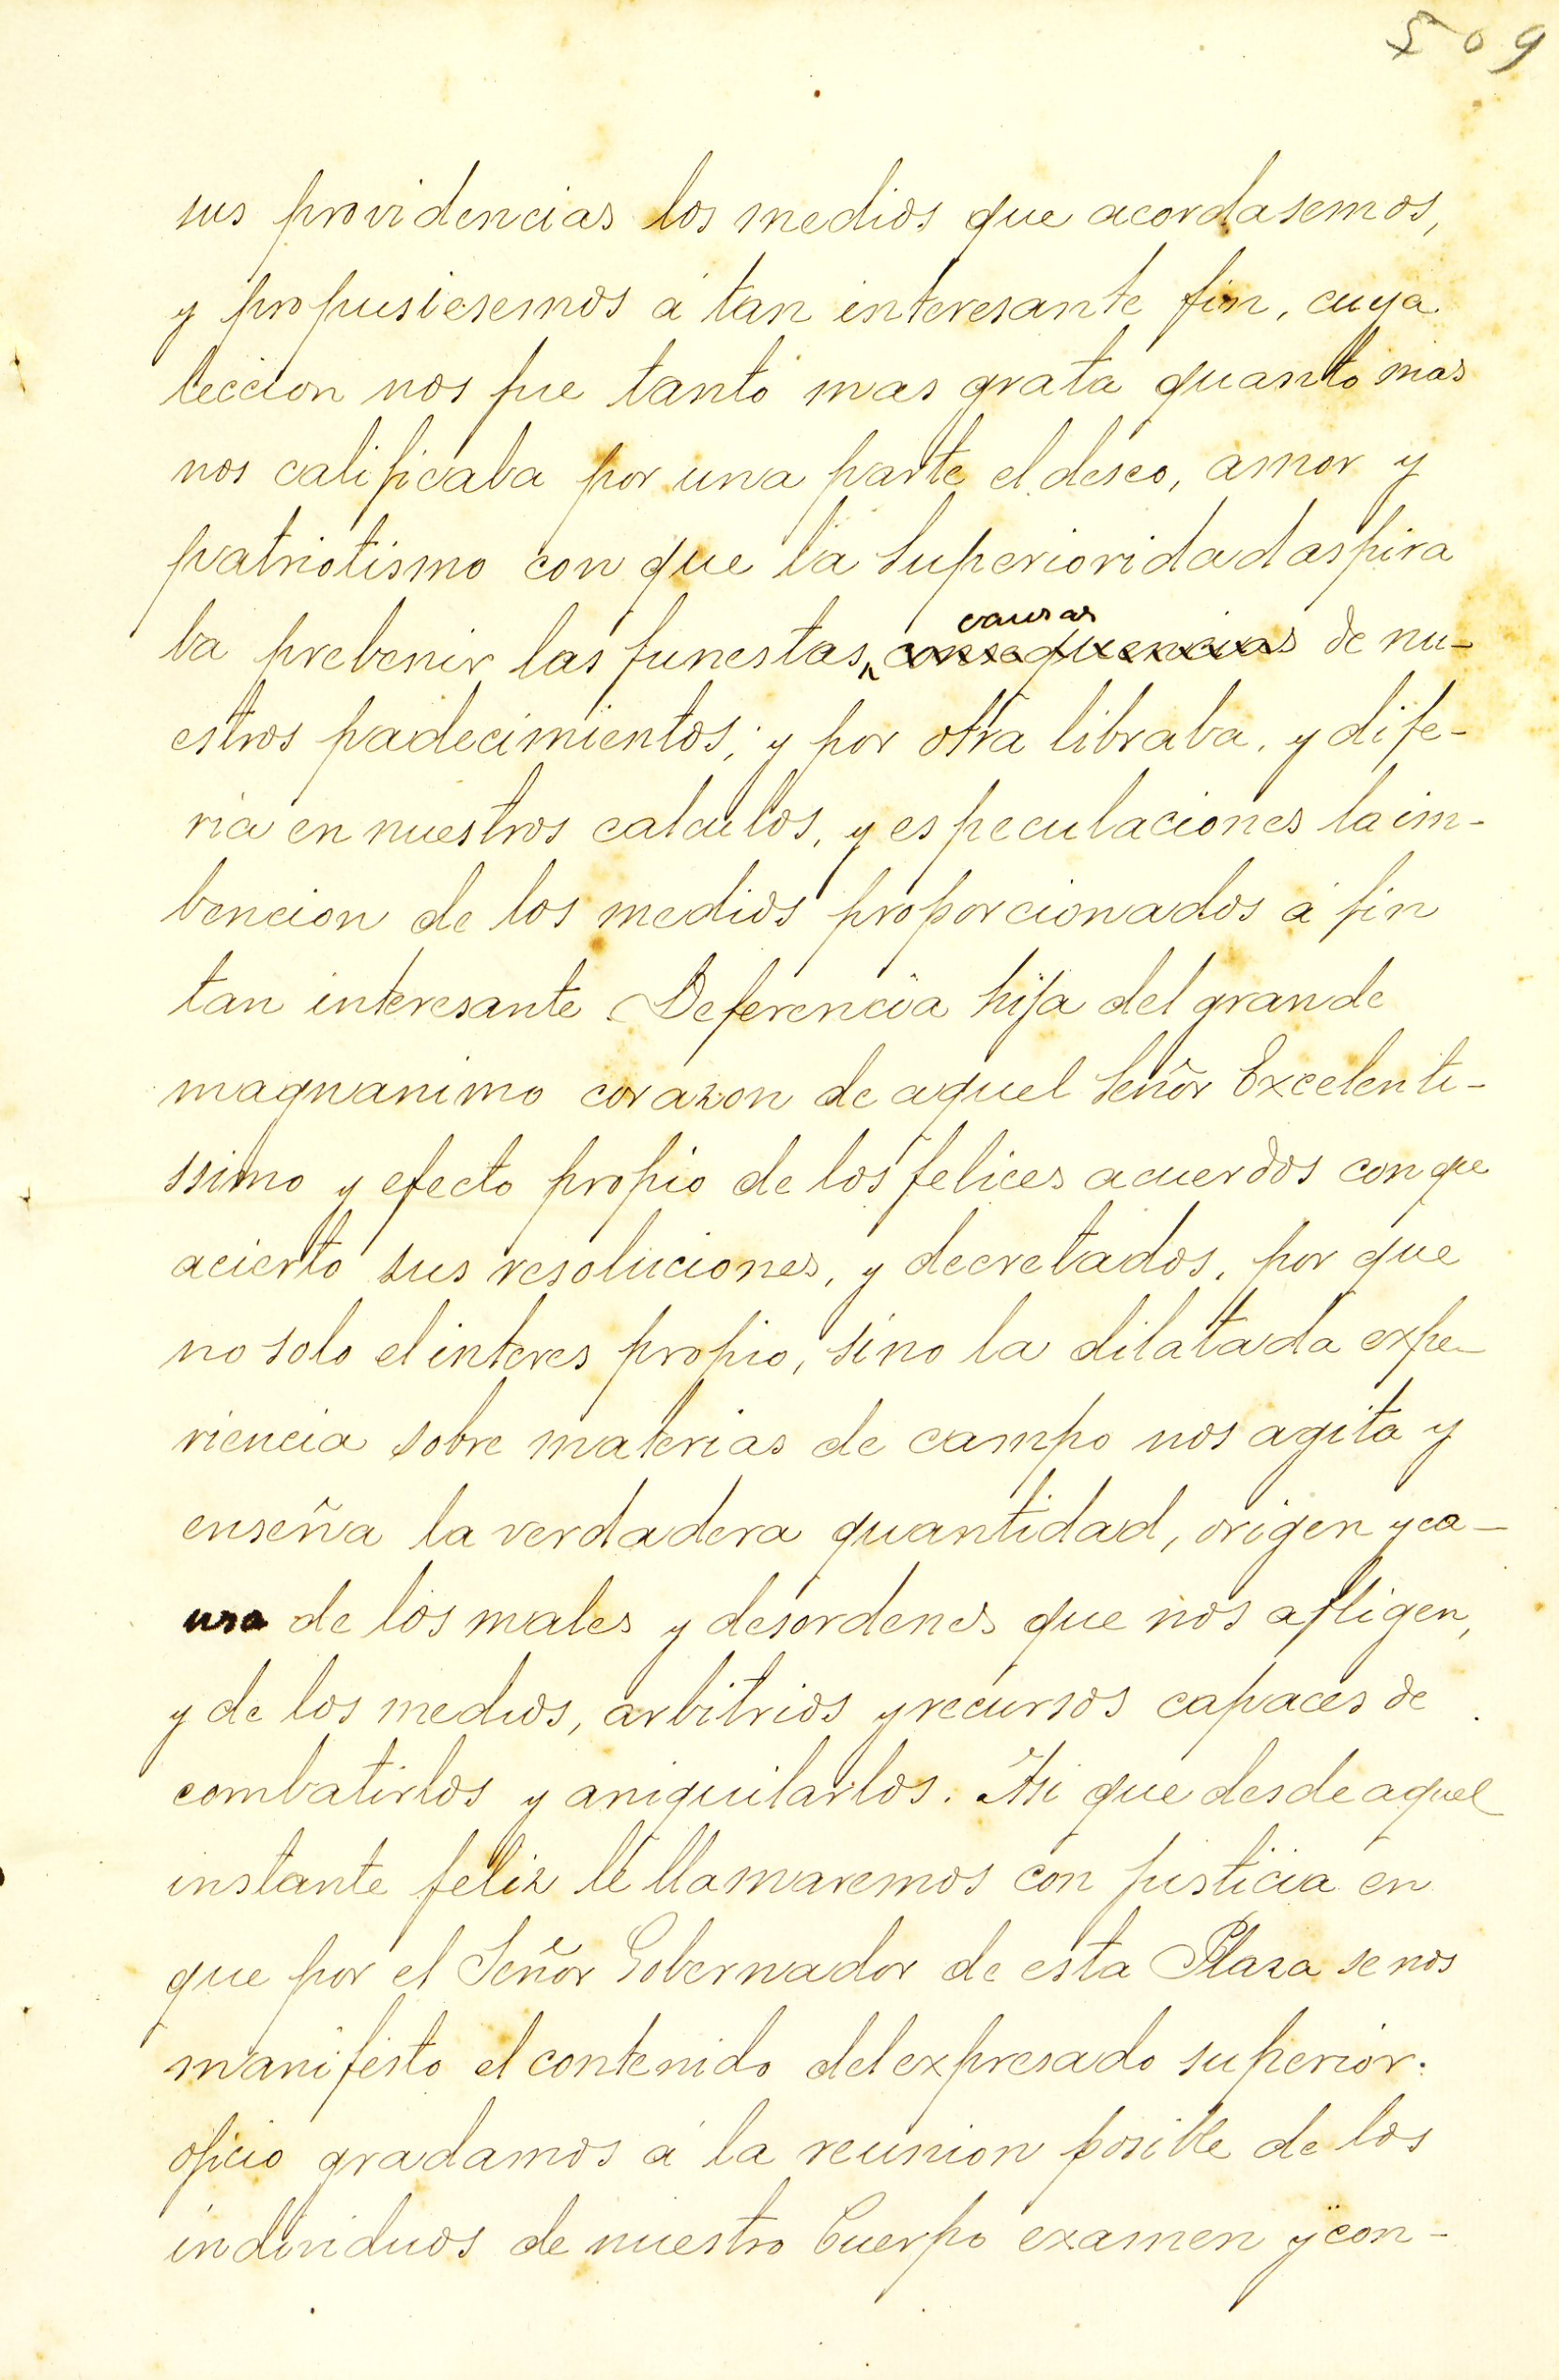 509
sus providencias los medios que acordasemos,
y propusiesemos á tan interesante fin, cuya
leccion nos fue tanto mas grata quanto mas
nos calificaba por una parte el deseo, amor y
patriotismo con que la Superioridad aspira
ba prebenir las funestas causas consequencias de nu-
estros padecimientos; y por otra libraba, y dife-
ria en nuestros calculos, y especulaciones la im-
bencion de los medios proporcionados á fin
tan interesante. Deferencia hija del grande
magnanimo corazon de aquel Señor Excelenti-
ssimo y efecto propio de los felices acuerdos con que
acierto sus resoluciones, y decretados, por que
no solo el interes propio, sino la dilatada expe-
riencia sobre materias de campo nos agita y
enseña la verdadera quantidad, origen y ca-
usa de los males y desordenes que nos afligen,
y de los medios, arbitrios y recursos capaces de
combatirlos y aniquilarlos. Asi que desde aquel
instante feliz le llamaremos con justicia en
que por el Señor Gobernador de esta Plaza se nos
manifesto el contenido del expresado superior.
oficio gradamos á la reunion posible de los
individuos de nuestro Cuerpo examen y con-